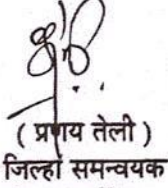 ( प्रणय तेली )
जिल्हा समन्वयक